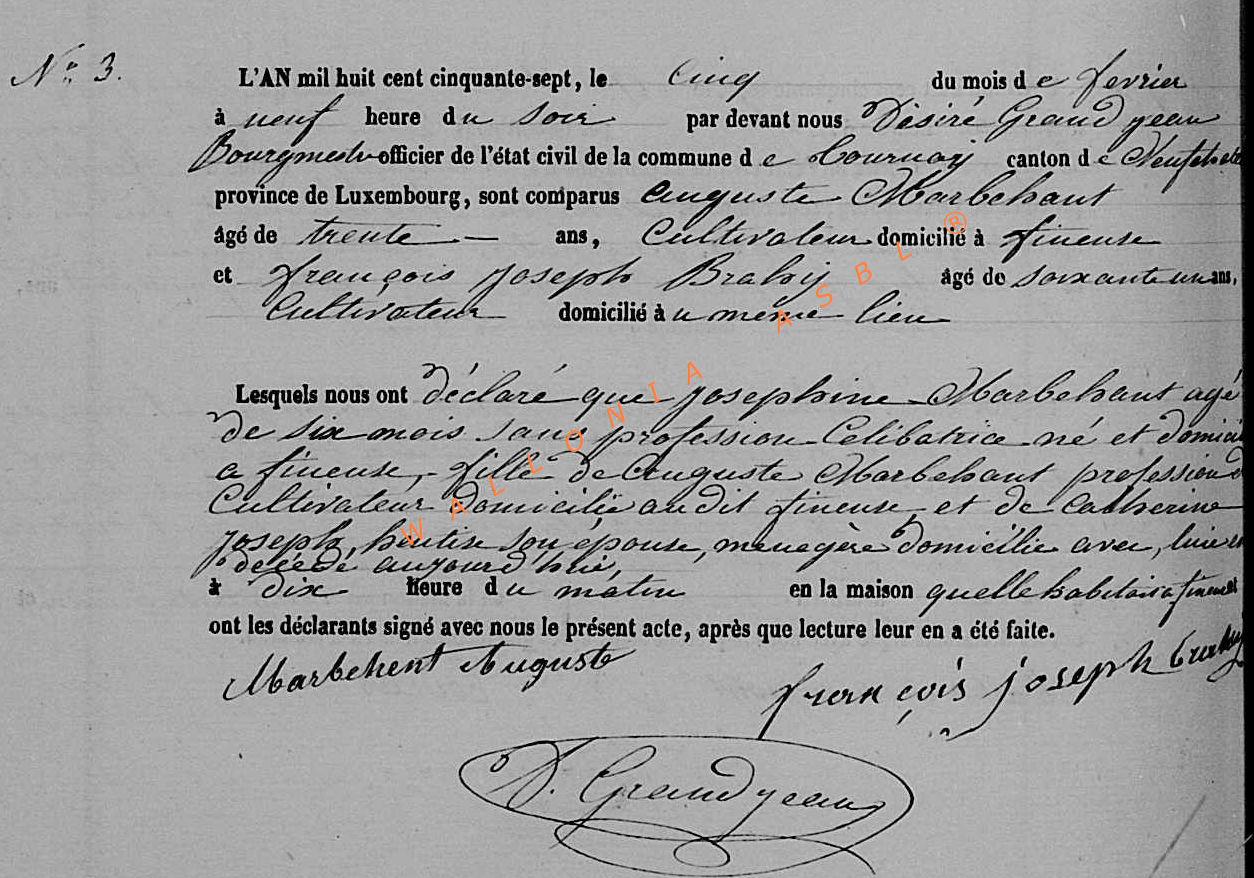 No 3.
L'AN mil huit cent cinquante-sept, le Cinq du mois de fevrier
à neuf heure du soir par devant nous Désiré Grandjean
Bourgmestre officier de l'état civil de la commune de Tournay canton de Neufchat
province de Luxembourg, sont comparus Auguste Marbehant
âgé de trente — ans, Cultivateur domicilié à fineuse
et françois Joseph Brahy âgé de soixante un ans,
Cultivateur domicilié àu même lieu
Lesquels nous ont déclaré que Josephine Marbehant agé
de six mois sans profession Célibatrice né et domici
a fineuse, fille de Auguste Marbehant profession d
Cultivateur domicilié audit fineuse et de Catherine
Joseph, son épouse, menagère domicilie avec lui
decedé aujourd hui,
à dix heure du matin en la maison quelle habitais a fineuse et
ont les déclarants signé avec nous le présent acte, après que lecture leur en a été faite.
Marbehent Auguste
françois joseph brahy
D. Grandjean
WALLONIA ASBL ®